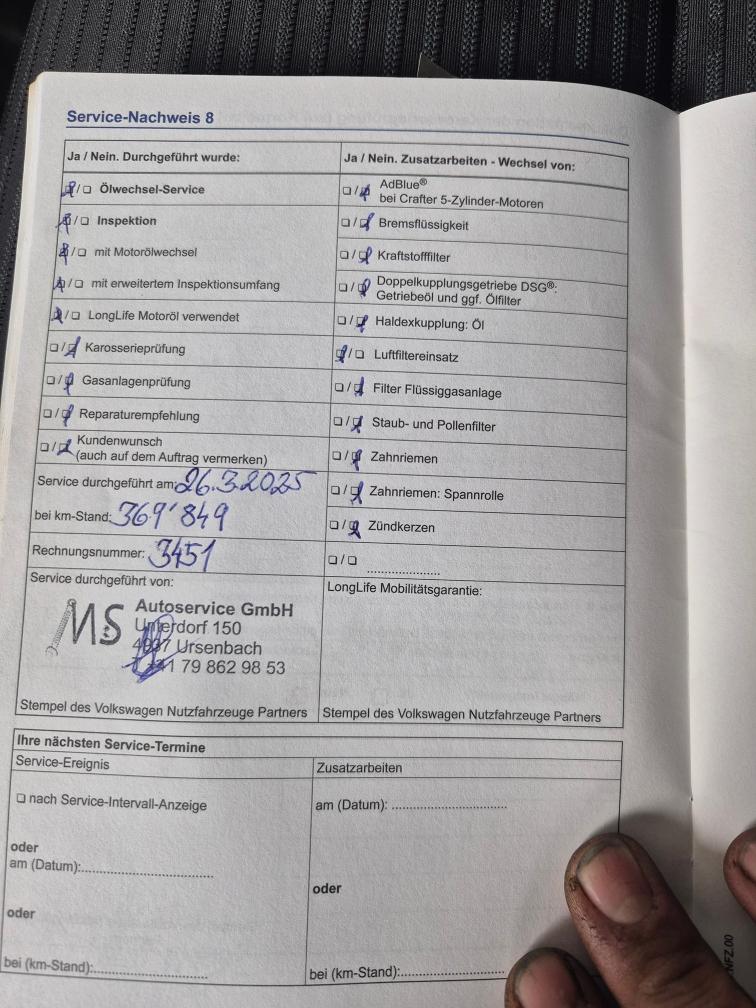 Service-Nachweis 8
Ja / Nein. Durchgeführt wurde:
☒/☐ Ölwechsel-Service
☒/☐ Inspektion
☒/☐ mit Motorölwechsel
☒/☐ mit erweitertem Inspektionsumfang
☒/☐ LongLife Motoröl verwendet
☐/☒ Karosserieprüfung
☐/☒ Gasanlagenprüfung
☐/☒ Reparaturempfehlung
☐/☒ Kundenwunsch
(auch auf dem Auftrag vermerken)
Service durchgeführt am: 26.3.2025
bei km-Stand: 369'849
Rechnungsnummer: 3451
Service durchgeführt von:
MS
Autoservice GmbH
Unterdorf 150
4937 Ursenbach
79 862 98 53
Stempel des Volkswagen Nutzfahrzeuge Partners
Ja / Nein. Zusatzarbeiten - Wechsel von:
☐/☒ AdBlue®
bei Crafter 5-Zylinder-Motoren
☐/☒ Bremsflüssigkeit
☐/☒ Kraftstofffilter
☐/☒ Doppelkupplungsgetriebe DSG®:
Getriebeöl und ggf. Ölfilter
☐/☒ Haldexkupplung: Öl
☒/☐ Luftfiltereinsatz
☐/☒ Filter Flüssiggasanlage
☐/☒ Staub- und Pollenfilter
☐/☒ Zahnriemen
☐/☒ Zahnriemen: Spannrolle
☐/☒ Zündkerzen
☐/☐ ....................
LongLife Mobilitätsgarantie:
Stempel des Volkswagen Nutzfahrzeuge Partners
Ihre nächsten Service-Termine
Service-Ereignis
☐ nach Service-Intervall-Anzeige
oder
am (Datum):..............................
oder
bei (km-Stand):..........................
Zusatzarbeiten
am (Datum): ..........................
oder
bei (km-Stand):........................
NFZ.00